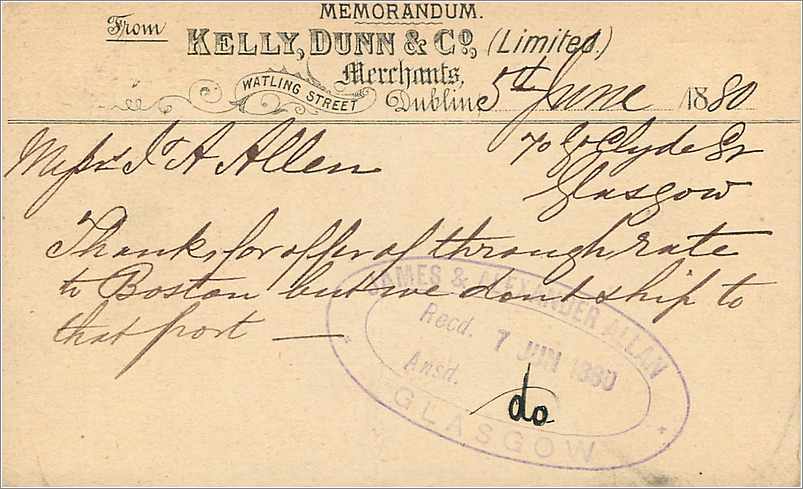 MEMORANDUM.
From
KELLY, DUNN & Co., (Limited.)
Merchants,
WATLING STREET
Dublin, 5th June 1880
Messrs J & A Allen
70 Gt Clyde St
Glasgow
Thanks for offer of through rate
to Boston but we dont ship to
that port —
JAMES & ALEXANDER ALLAN
Recd. 7 JUN 1880
Ansd. do
GLASGOW